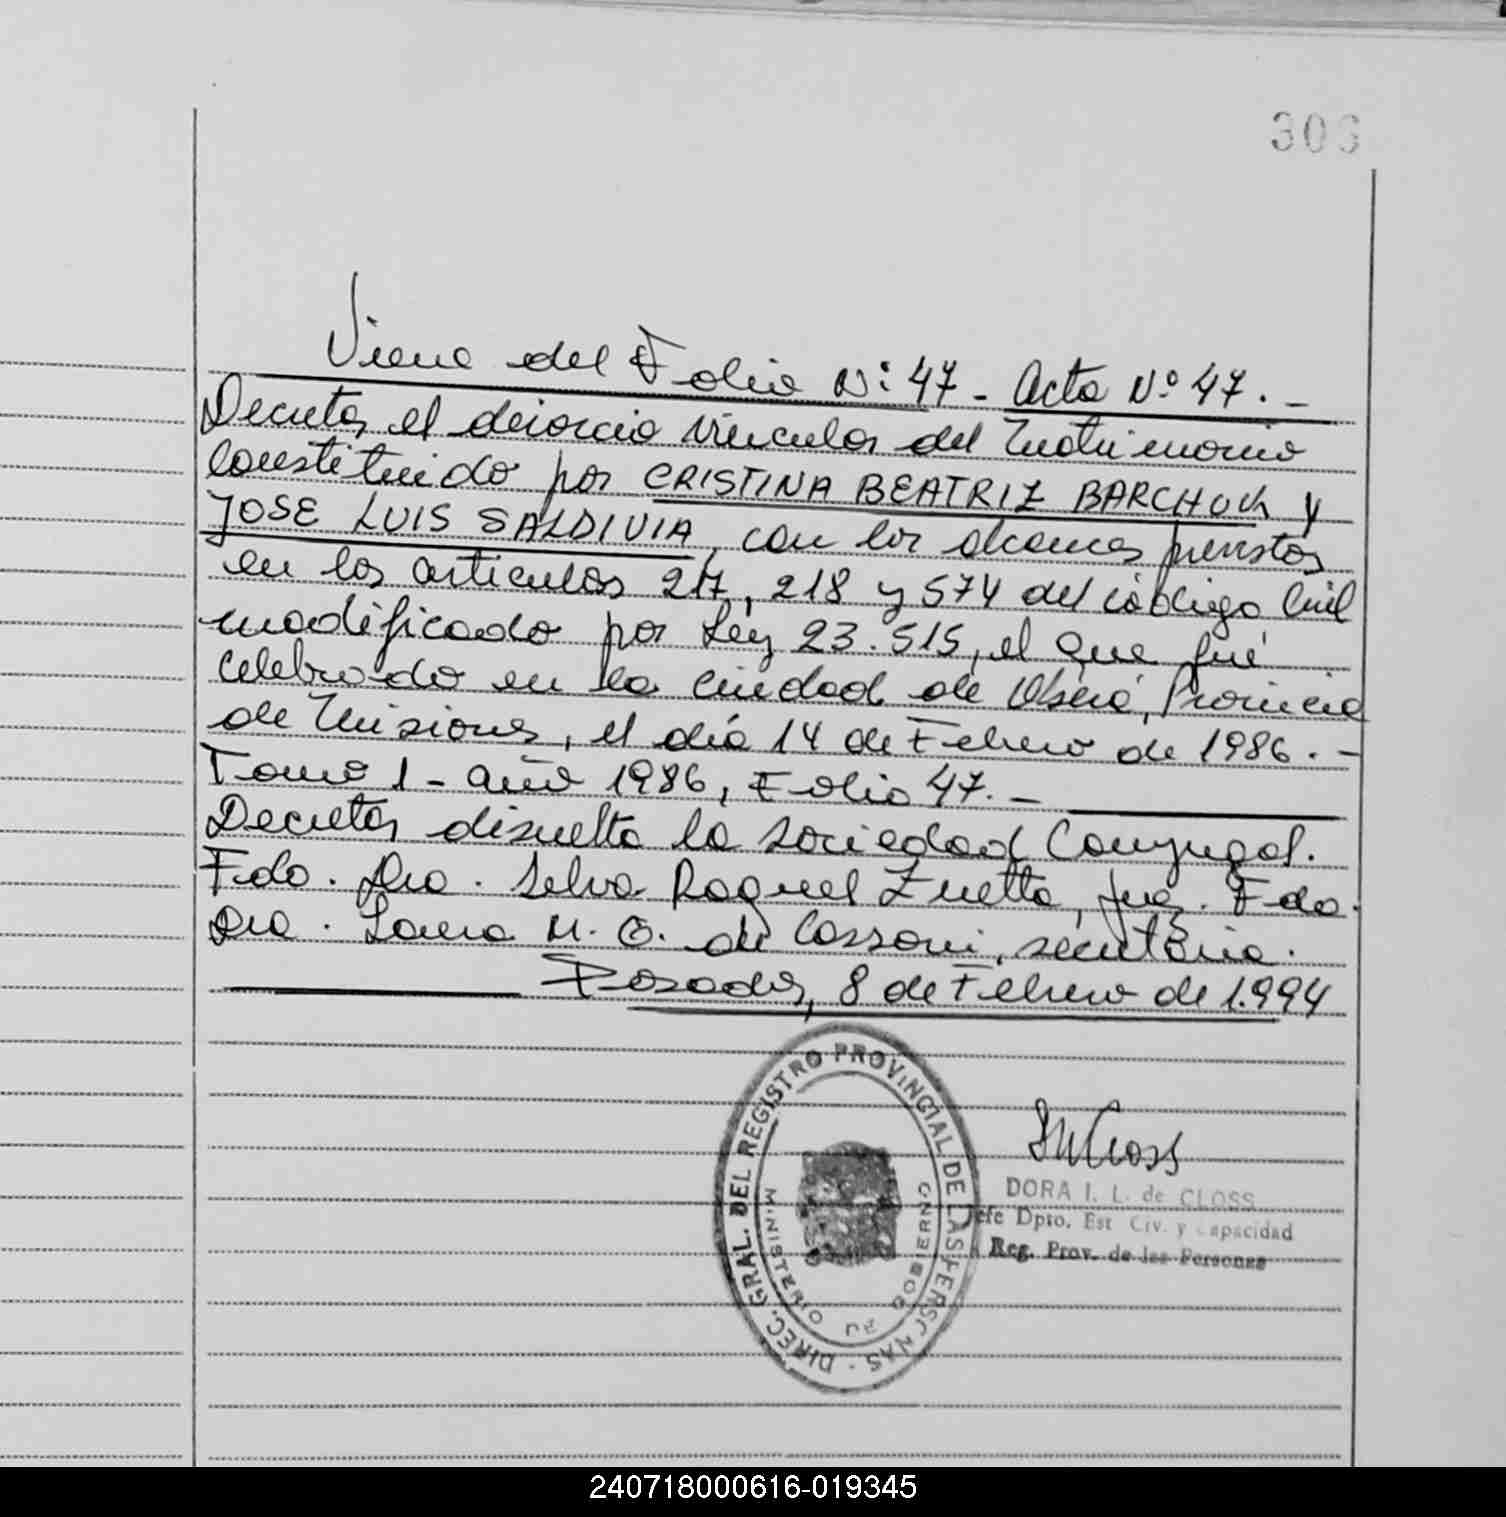 303
Viene del Folio Nº 47 - Acta Nº 47. -
Decretar el divorcio vincular del Matrimonio
constituido por CRISTINA BEATRIZ BARCHUK y
JOSE LUIS SALDIVIA, con los alcances previstos
en los artículos 217, 218 y 574 del código Civil
modificado por Ley 23.515, el que fué
celebrado en la ciudad de Oberá, Provincia
de Misiones, el día 14 de Febrero de 1986. -
Tomo 1 - año 1986, Folio 47. -
Decretar disuelta la Sociedad Conyugal.
Fdo. Dra. Selva Raquel Zuetta, Juez. Fdo.
Dra. Laura M. G. de Cassoni, secretaria.
Posadas, 8 de Febrero de 1.994
DIREC. GRAL. DEL REGISTRO PROVINCIAL DE LAS PERSONAS
MINISTERIO DE GOBIERNO
DORA I. L. de CLOSS
Jefe Dpto. Est Civ. y Capacidad
Reg. Prov. de las Personas
240718000616-019345